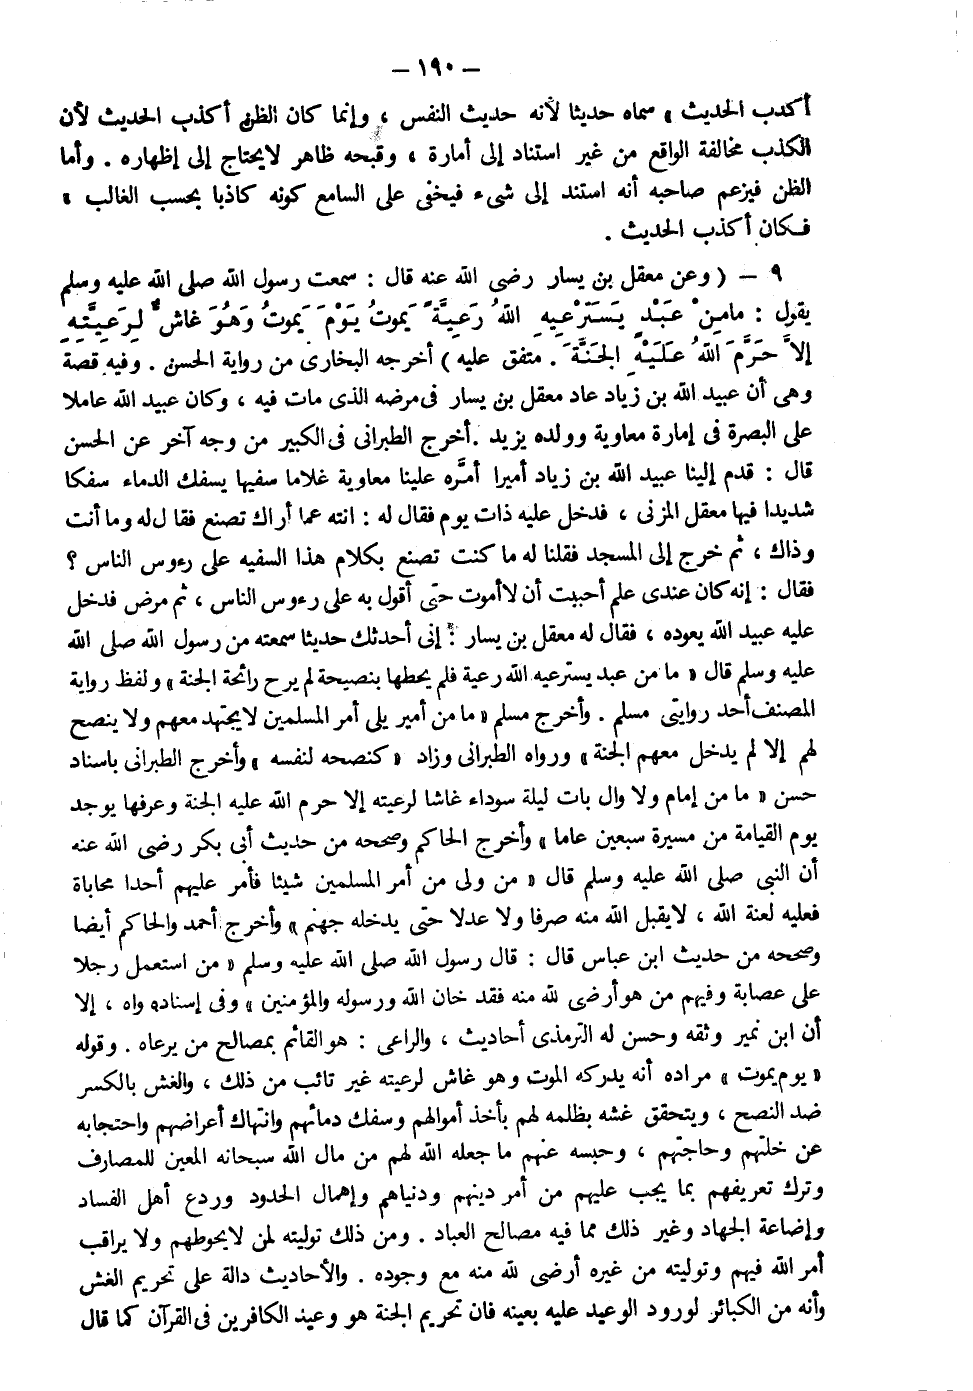 — ١٩٠ —
أكدب الحديث » سماه حديثا لأنه حديث النفس ، وإنما كان الظن أكذب الحديث لأن
الكذب مخالفة الواقع من غير استناد إلى أمارة ، وقبحه ظاهر لا يحتاج إلى إظهاره . وأما
الظن فيزعم صاحبه أنه استند إلى شىء فيخفى على السامع كونه كاذبا بحسب الغالب »
فكان أكذب الحديث .
٩ — ( وعن معقل بن يسار رضى الله عنه قال : سمعت رسول الله صلى الله عليه وسلم
يقول : مامِنْ عَبْدٍ يَسْتَرْعِيهِ اللهُ رَعِيَّةً يَموتُ يَوْمَ يَموتُ وَهُوَ غاشٌّ لِرَعِيَّتِهِ
إلاَّ حَرَّمَ اللهُ عَلَيْهِ الجَنَّةَ . متفق عليه ) أخرجه البخارى من رواية الحسن . وفيه قصة
وهى أن عبيد الله بن زياد عاد معقل بن يسار فى مرضه الذى مات فيه ، وكان عبيد الله عاملا
على البصرة فى إمارة معاوية وولده يزيد . أخرج الطبرانى فى الكبير من وجه آخر عن الحسن
قال : قدم إلينا عبيد الله بن زياد أميرا أمَّره علينا معاوية غلاما سفيها يسفك الدماء سفكا
شديدا فيها معقل المزنى ، فدخل عليه ذات يوم فقال له : انته عما أراك تصنع فقال له وما أنت
وذاك ، ثم خرج إلى المسجد فقلنا له ما كنت تصنع بكلام هذا السفيه على رءوس الناس ؟
فقال : إنه كان عندى علم أحببت أن لا أموت حتى أقول به على رءوس الناس ، ثم مرض فدخل
عليه عبيد الله يعوده ، فقال له معقل بن يسار : إنى أحدثك حديثا سمعته من رسول الله صلى الله
عليه وسلم قال « ما من عبد يسترعيه الله رعية فلم يحطها بنصيحة لم يرح رائحة الجنة » ولفظ رواية
المصنف أحد روايتى مسلم . وأخرج مسلم « ما من أمير يلى أمر المسلمين لا يجتهد معهم ولا ينصح
لهم إلا لم يدخل معهم الجنة » ورواه الطبرانى وزاد « كنصحه لنفسه » وأخرج الطبرانى باسناد
حسن « ما من إمام ولا وال بات ليلة سوداء غاشا لرعيته إلا حرم الله عليه الجنة وعرفها يوجد
يوم القيامة من مسيرة سبعين عاما » وأخرج الحاكم وصححه من حديث أبى بكر رضى الله عنه
أن النبى صلى الله عليه وسلم قال « من ولى من أمر المسلمين شيئا فأمر عليهم أحدا محاباة
فعليه لعنة الله ، لا يقبل الله منه صرفا ولا عدلا حتى يدخله جهنم » وأخرج أحمد والحاكم أيضا
وصححه من حديث ابن عباس قال : قال رسول الله صلى الله عليه وسلم « من استعمل رجلا
على عصابة وفيهم من هو أرضى لله منه فقد خان الله ورسوله والمؤمنين » وفى إسناده واه ، إلا
أن ابن نمير وثقه وحسن له الترمذى أحاديث ، والراعى : هو القائم بمصالح من يرعاه . وقوله
« يوم يموت » مراده أنه يدركه الموت وهو غاش لرعيته غير تائب من ذلك ، والغش بالكسر
ضد النصح ، ويتحقق غشه بظلمه لهم بأخذ أموالهم وسفك دمائهم وانتهاك أعراضهم واحتجابه
عن خلتهم وحاجتهم ، وحبسه عنهم ما جعله الله لهم من مال الله سبحانه المعين للمصارف
وترك تعريفهم بما يجب عليهم من أمر دينهم ودنياهم وإهمال الحدود وردع أهل الفساد
وإضاعة الجهاد وغير ذلك مما فيه مصالح العباد . ومن ذلك توليته لمن لا يحوطهم ولا يراقب
أمر الله فيهم وتوليته من غيره أرضى لله منه مع وجوده . والأحاديث دالة على تحريم الغش
وأنه من الكبائر لورود الوعيد عليه بعينه فان تحريم الجنة هو وعيد الكافرين فى القرآن كما قال